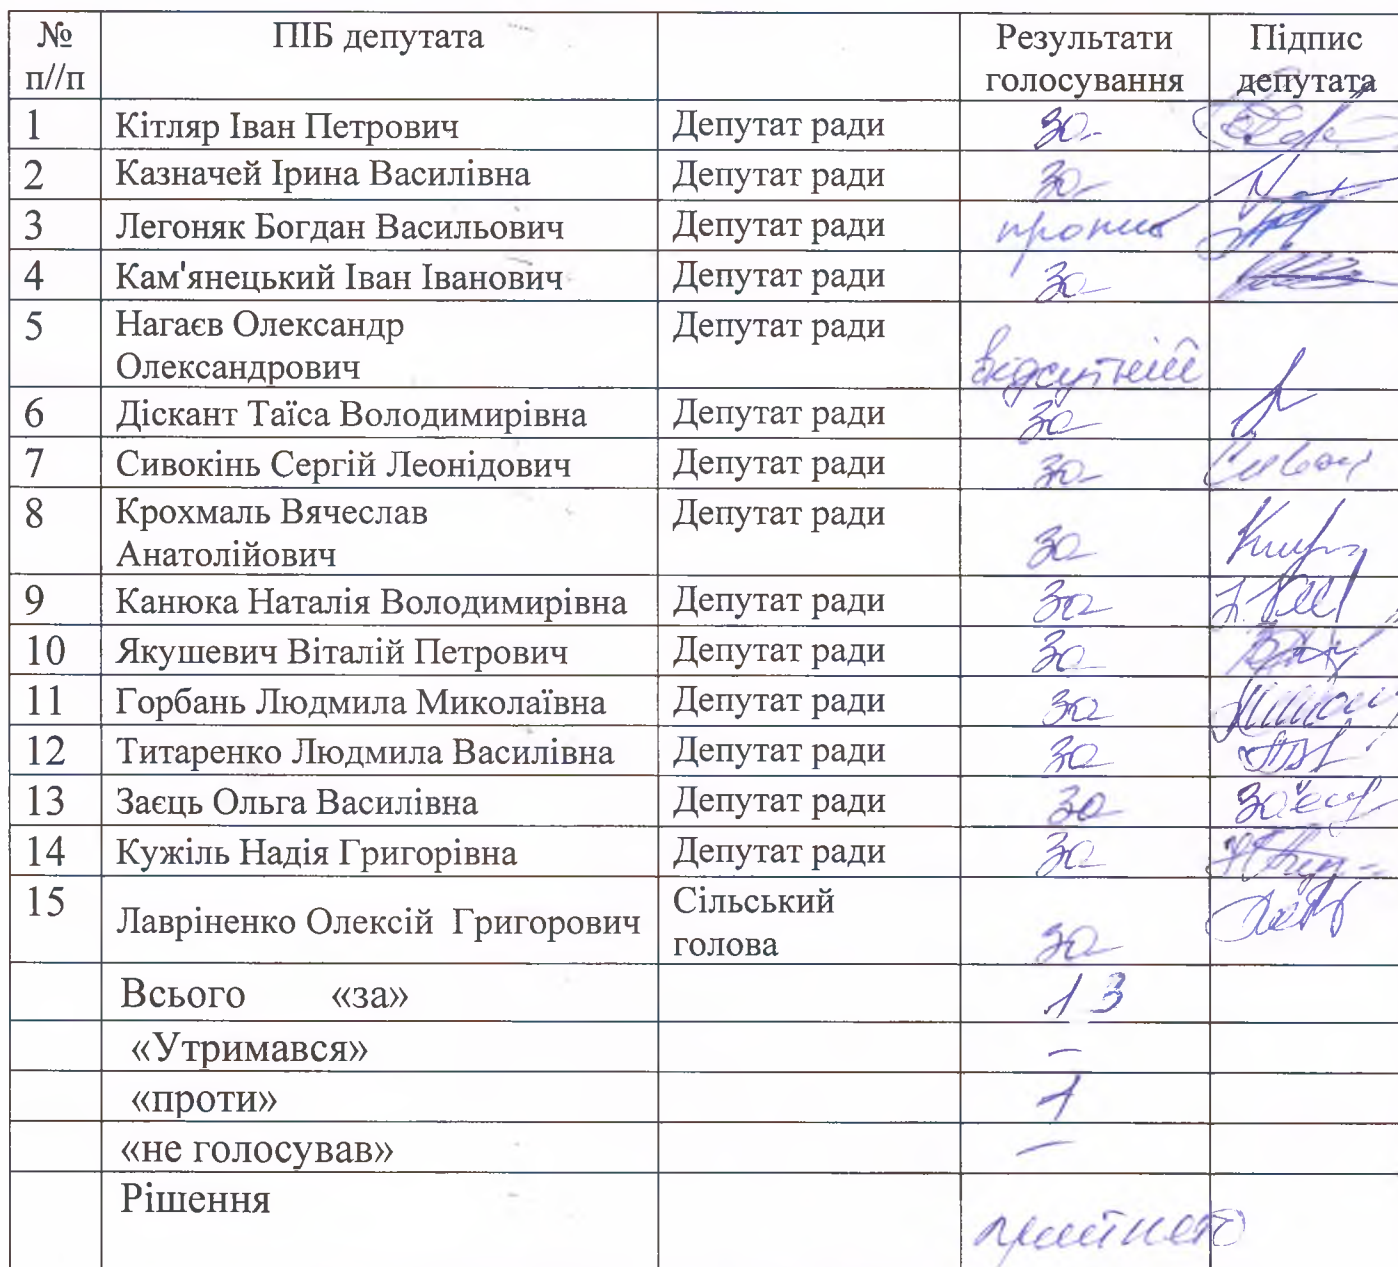 № ПІБ депутата Результати Підпис
п//п голосування депутата
1 Кітляр Іван Петрович Депутат ради за
2 Казначей Ірина Василівна Депутат ради за
3 Легоняк Богдан Васильович Депутат ради проти
4 Кам'янецький Іван Іванович Депутат ради за
5 Нагаєв Олександр Депутат ради
Олександрович відсутній
6 Діскант Таїса Володимирівна Депутат ради за
7 Сивокінь Сергій Леонідович Депутат ради за
8 Крохмаль Вячеслав Депутат ради
Анатолійович за
9 Канюка Наталія Володимирівна Депутат ради за
10 Якушевич Віталій Петрович Депутат ради за
11 Горбань Людмила Миколаївна Депутат ради за
12 Титаренко Людмила Василівна Депутат ради за
13 Заєць Ольга Василівна Депутат ради за
14 Кужіль Надія Григорівна Депутат ради за
15 Лавріненко Олексій Григорович Сільський
голова за
Всього «за» 13
«Утримався» –
«проти» 1
«не голосував» –
Рішення
прийнято